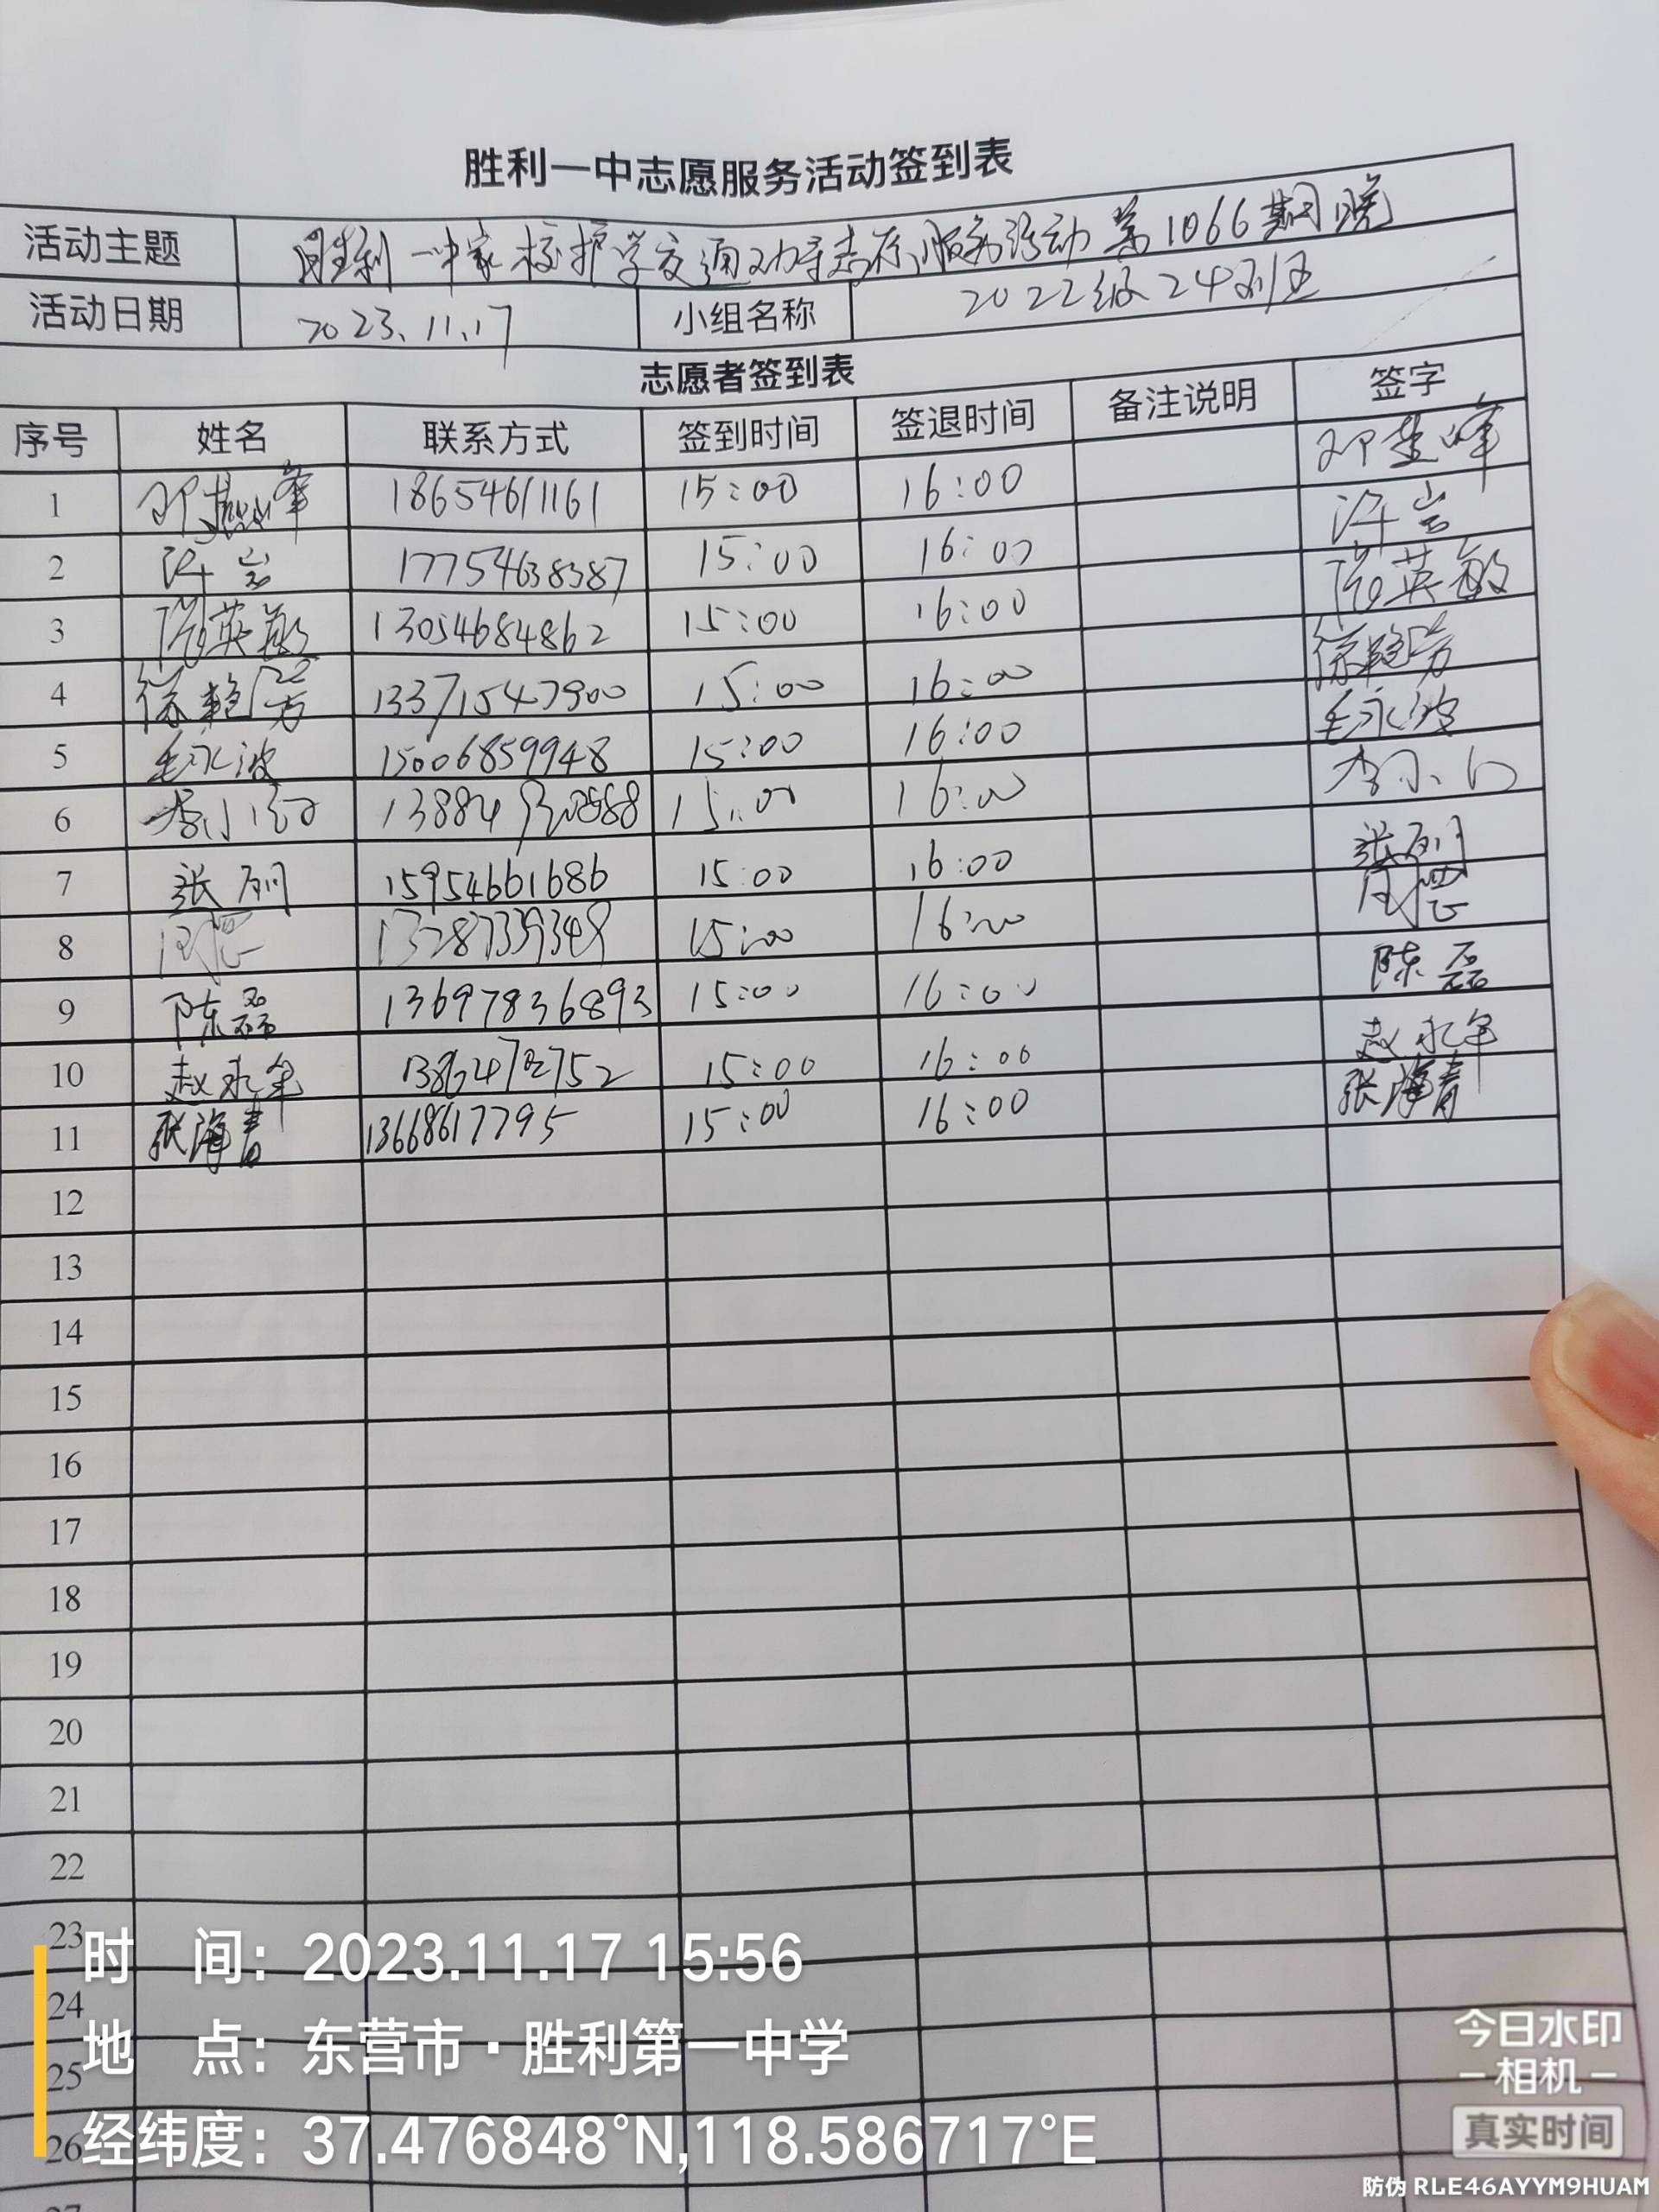 胜利一中志愿服务活动签到表
活动主题 胜利一中家校护学交通劝导志愿服务活动第1066期晚
活动日期 2023.11.17 小组名称 2022级24班
志愿者签到表
序号 姓名 联系方式 签到时间 签退时间 备注说明 签字
1 峰 18654611161 15:00 16:00 峰
2 许岩 17754638387 15:00 16:00 许岩
3 英敏 13054684862 15:00 16:00 英敏
4 徐艳芳 13371547900 15:00 16:00 徐艳芳
5 毛永波 15006859948 15:00 16:00 毛永波
6 李小 15:00 16:00 李小
7 张丽 15954661686 15:00 16:00 张丽
8 13287339349 15:00 16:00
9 陈磊 13697836893 15:00 16:00 陈磊
10 赵永年 15:00 16:00 赵永年
11 张海青 13668617795 15:00 16:00 张海青
12
13
14
15
16
17
18
19
20
21
22
23
24
25
26
27
时 间：2023.11.17 15:56
地 点：东营市·胜利第一中学
经纬度：37.476848°N,118.586717°E
今日水印
相机
真实时间
防伪 RLE46AYYM9HUAM